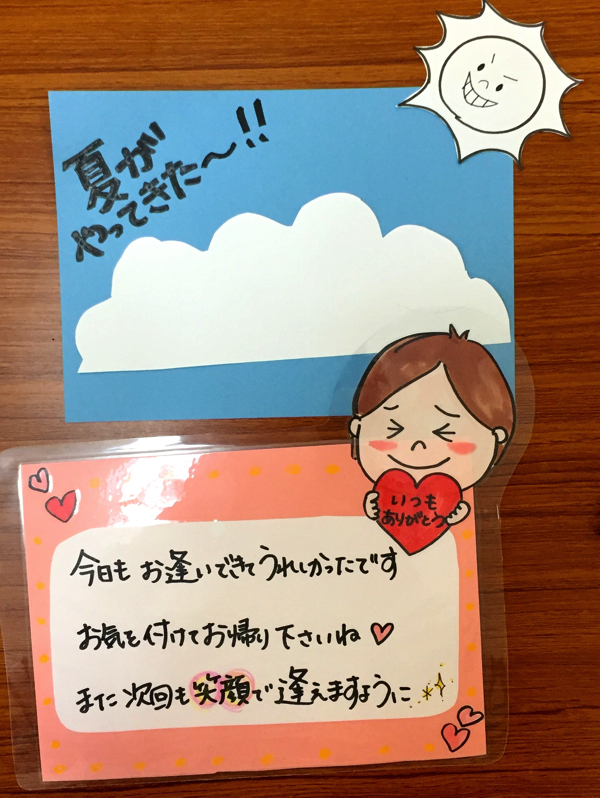 夏が
やってきた〜!!
いつも
ありがとう
今日も お逢いできてうれしかったです
お気を付けてお帰り下さいね♡
また次回も笑顔で逢えますように